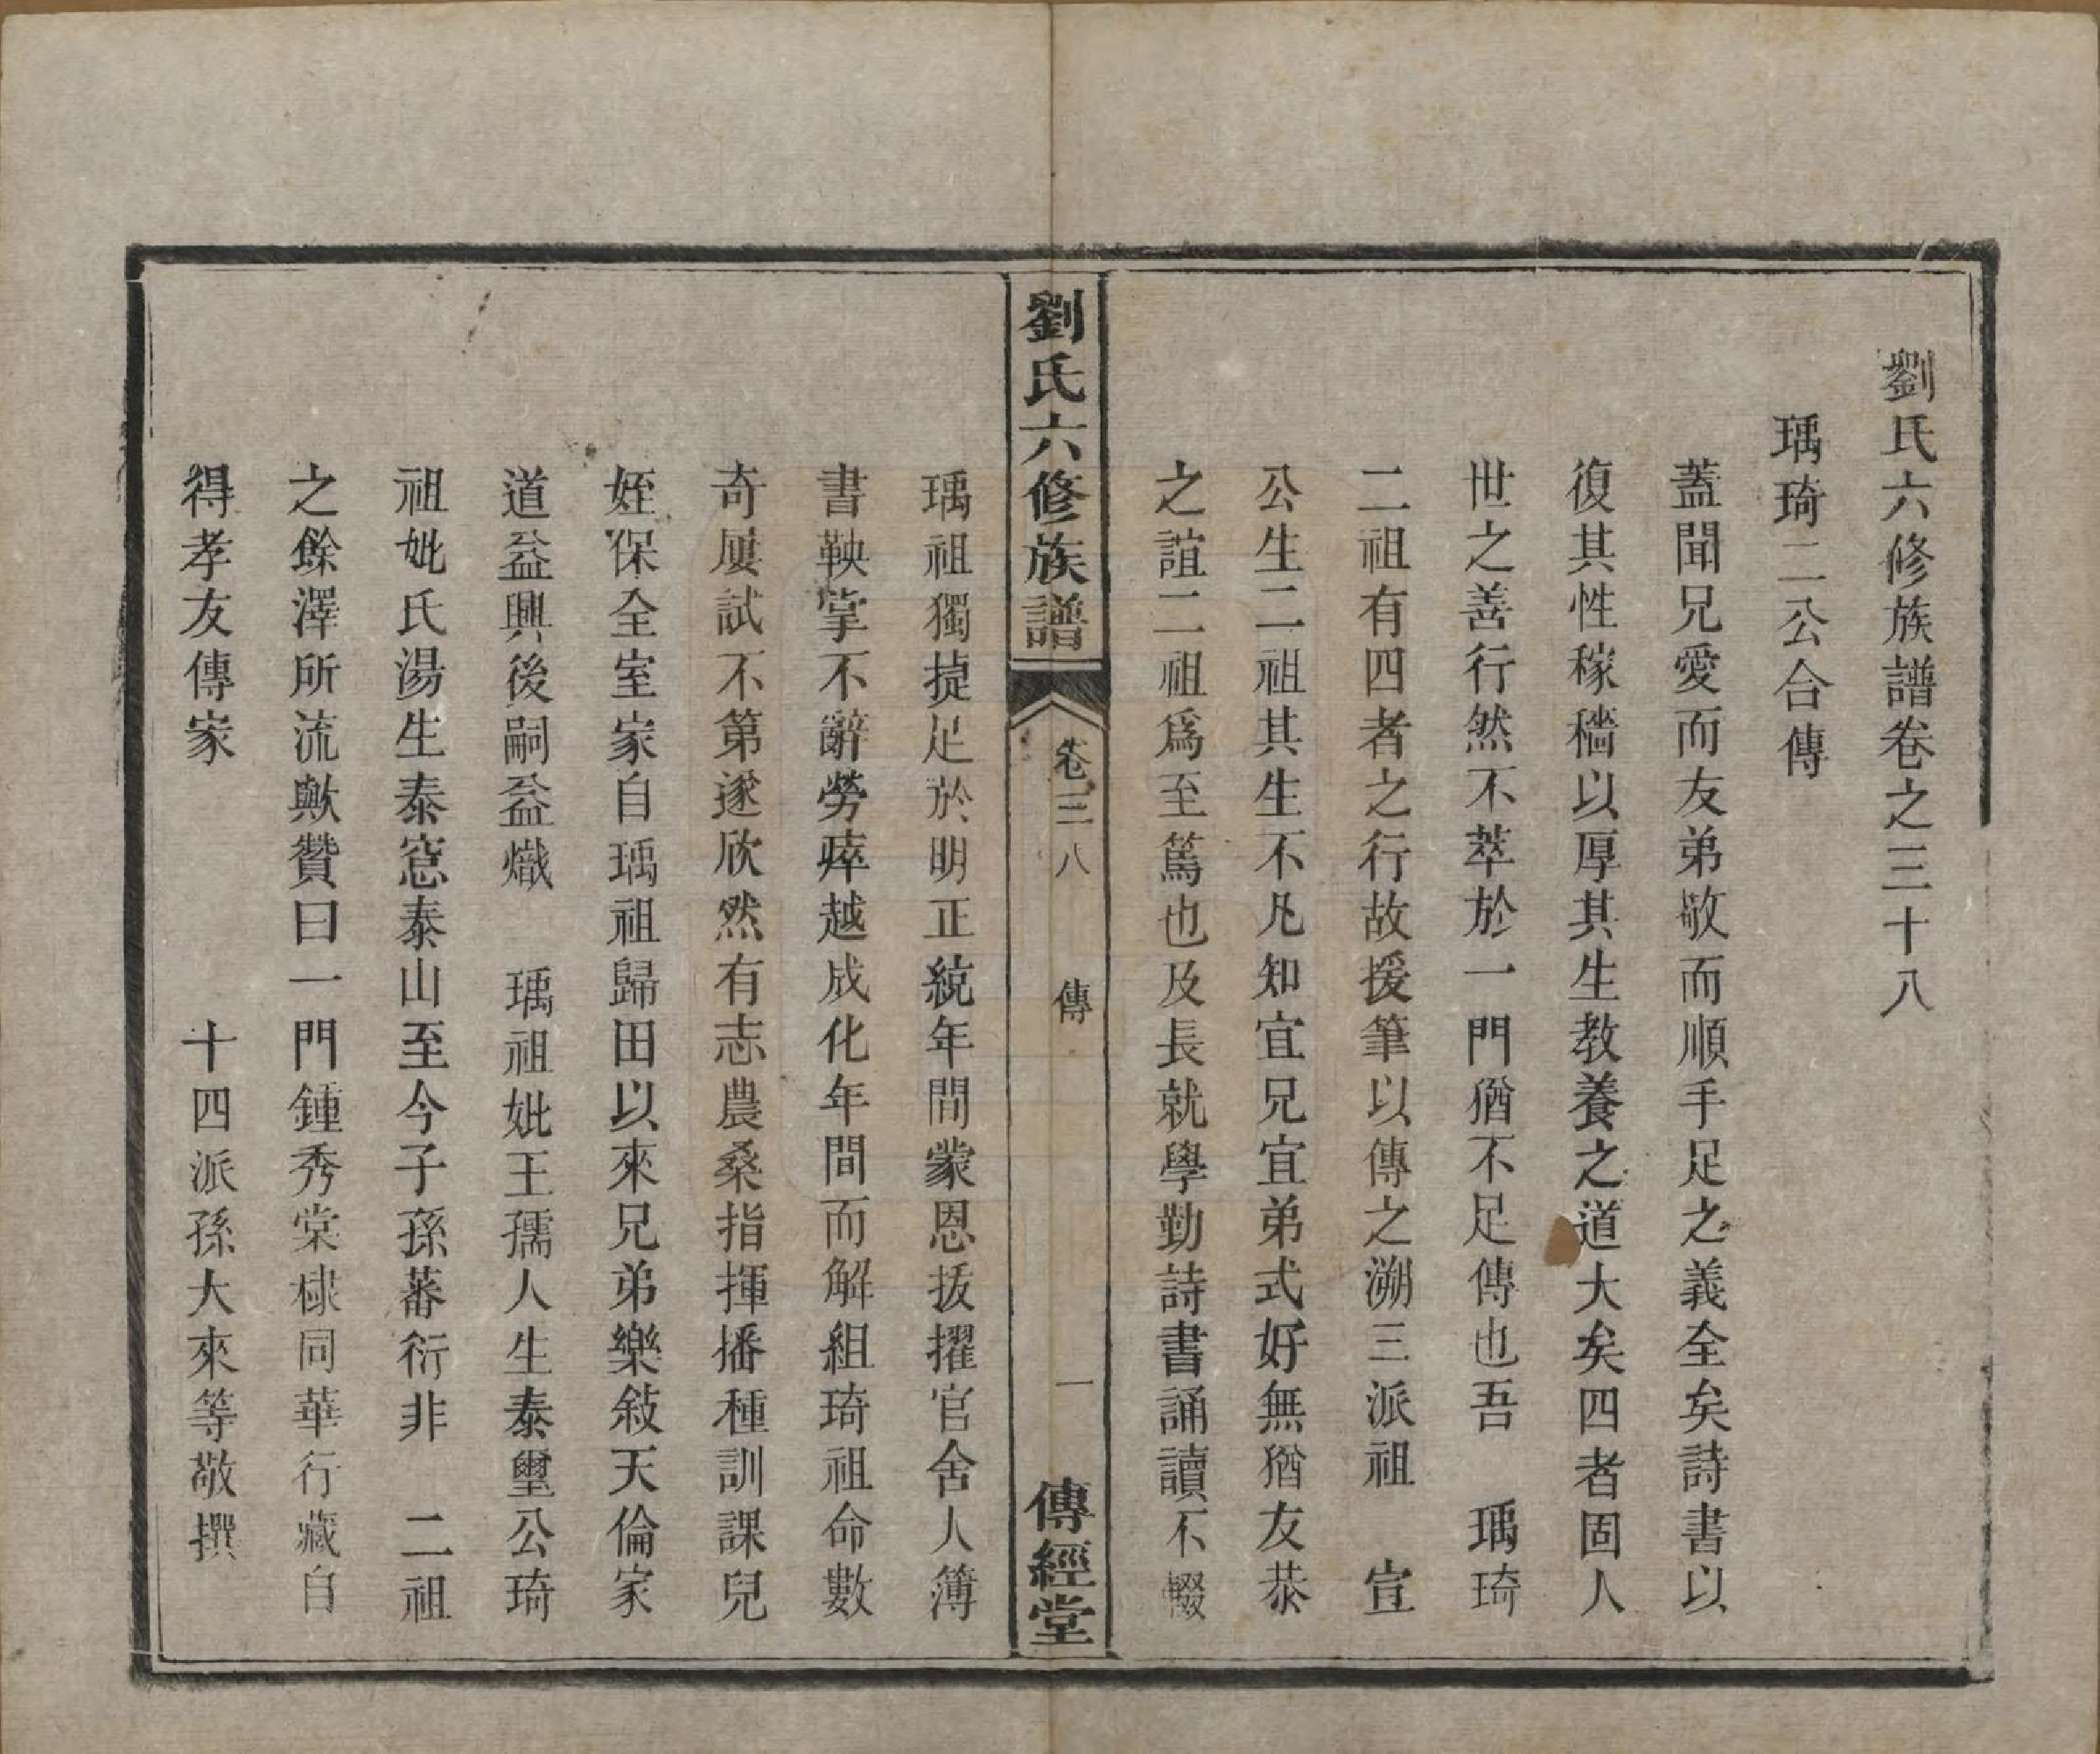 劉氏六修族譜卷之三十八
瑀琦二公合傳
蓋聞兄愛而友弟敬而順手足之義全矣詩書以
復其性稼穡以厚其生教養之道大矣四者固人
世之善行然不萃於一門猶不足傳也吾　瑀琦
二祖有四者之行故援筆以傳之溯三派祖　宣
公生二祖其生不凡知宜兄宜弟式好無猶友恭
之誼二祖爲至篤也及長就學勤詩書誦讀不輟
劉氏六修族譜　卷三八　傳　一　傳經堂
瑀祖獨㨗足於明正統年間蒙恩拔擢官舍人簿
書鞅掌不辭勞瘁越成化年間而解組琦祖命數
奇屢試不第遂欣然有志農桑指揮播種訓課兒
姪保全室家自瑀祖歸田以來兄弟樂敍天倫家
道益興後嗣益熾　瑀祖妣王孺人生泰璽公琦
祖妣氏湯生泰窓泰山至今子孫蕃衍非　二祖
之餘澤所流歟贊曰一門鍾秀棠棣同華行藏自
得孝友傳家　　　　十四派孫大來等敬撰